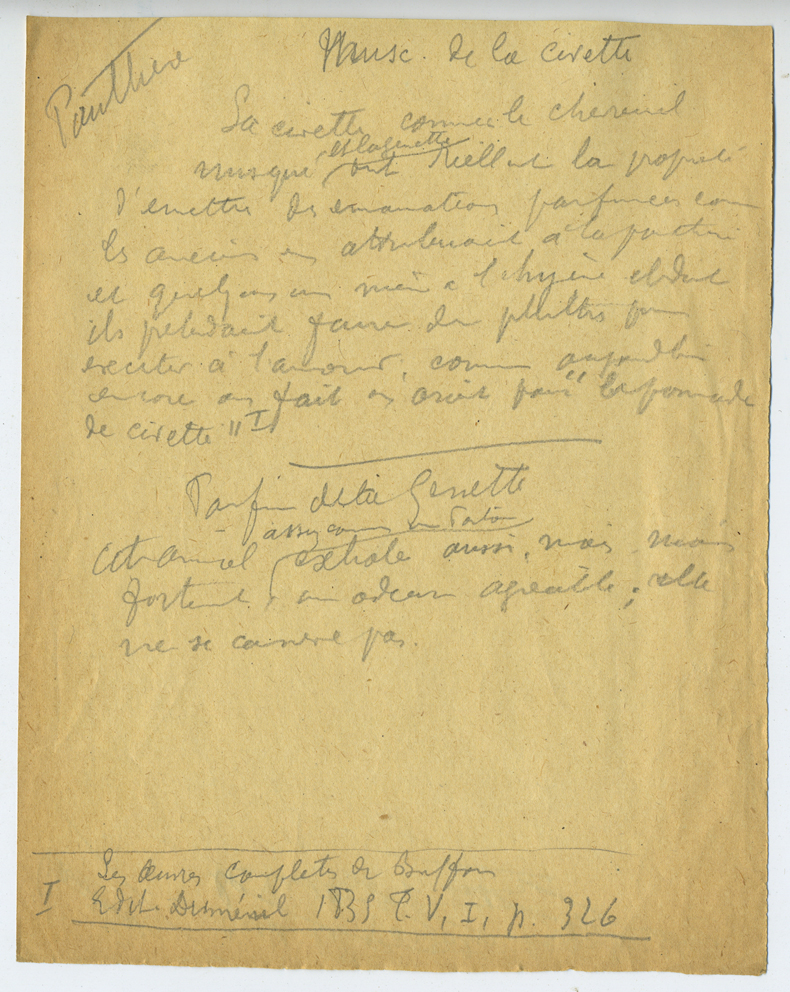 Panthère
Musc. de la civette
La civette comme le chevreuil
et la genette
musqué ont réellent la propriété
d'emettre des emanations parfumées com
les anciens en attribuait à la panthère
et quelques uns même a l'hyène et dont
ils pretendait faire des philtres pour
exciter à l'amour. comme aujourd'hui
encore on fait en orient pour "la pommade
de civette" I
Parfum de la Genette
assez commun en Poitou
Cet animal exhale aussi, mais moins
fortement, un odeur agreable; elle
ne se conserve pas.
I Les œuvres completes de Buffon
Edit. Duménil 1835 T. V, I, p. 326